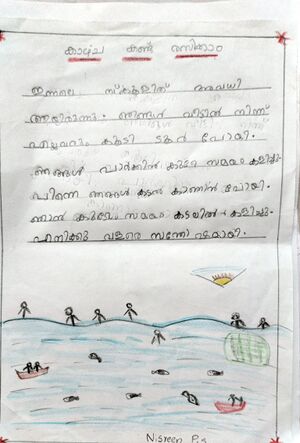 കാഴ്ച കണ്ട് രസിക്കാം
ഇന്നലെ സ്കൂളിന് അവധി
ആയിരുന്നു. ഞങ്ങൾ വീട്ടിൽ നിന്ന്
എല്ലാവരും കൂടി ടൂർ പോയി.
ഞങ്ങൾ പാർക്കിൽ കുറേ സമയം കളിച്ചു.
പിന്നെ ഞങ്ങൾ കടൽ കാണാൻ പോയി.
ഞാൻ കുറേ സമയം കടലിൽ കളിച്ചു.
എനിക്കു വളരെ സന്തോഷമായി.
Nisreen P.s